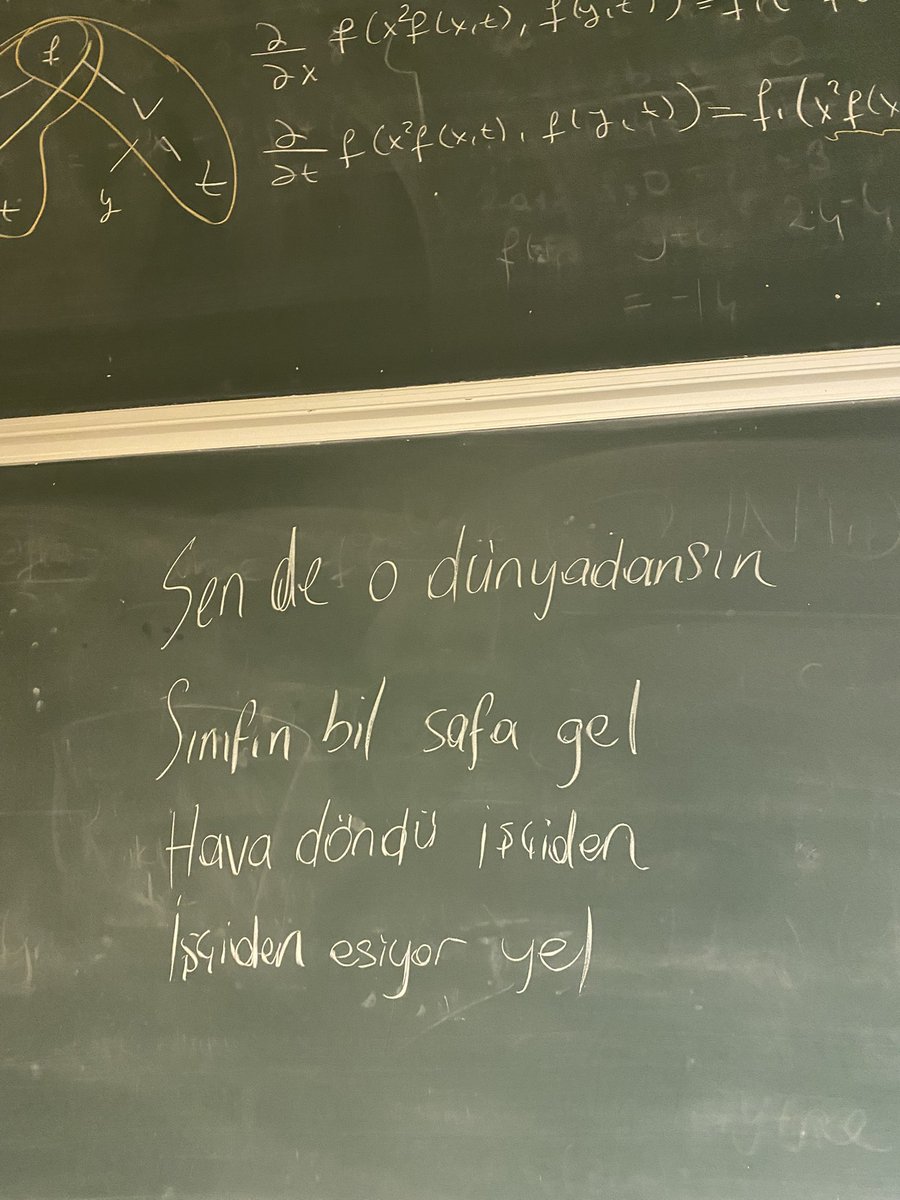 f
v
t y t
∂/∂x f(x²f(x,t), f(y,t))=f₁(
∂/∂t f(x²f(x,t), f(y,t))=f₁(x²f(x
= -14
Sen de o dünyadansın
Sınıfın bil safa gel
Hava döndü işçiden
İşçiden esiyor yel